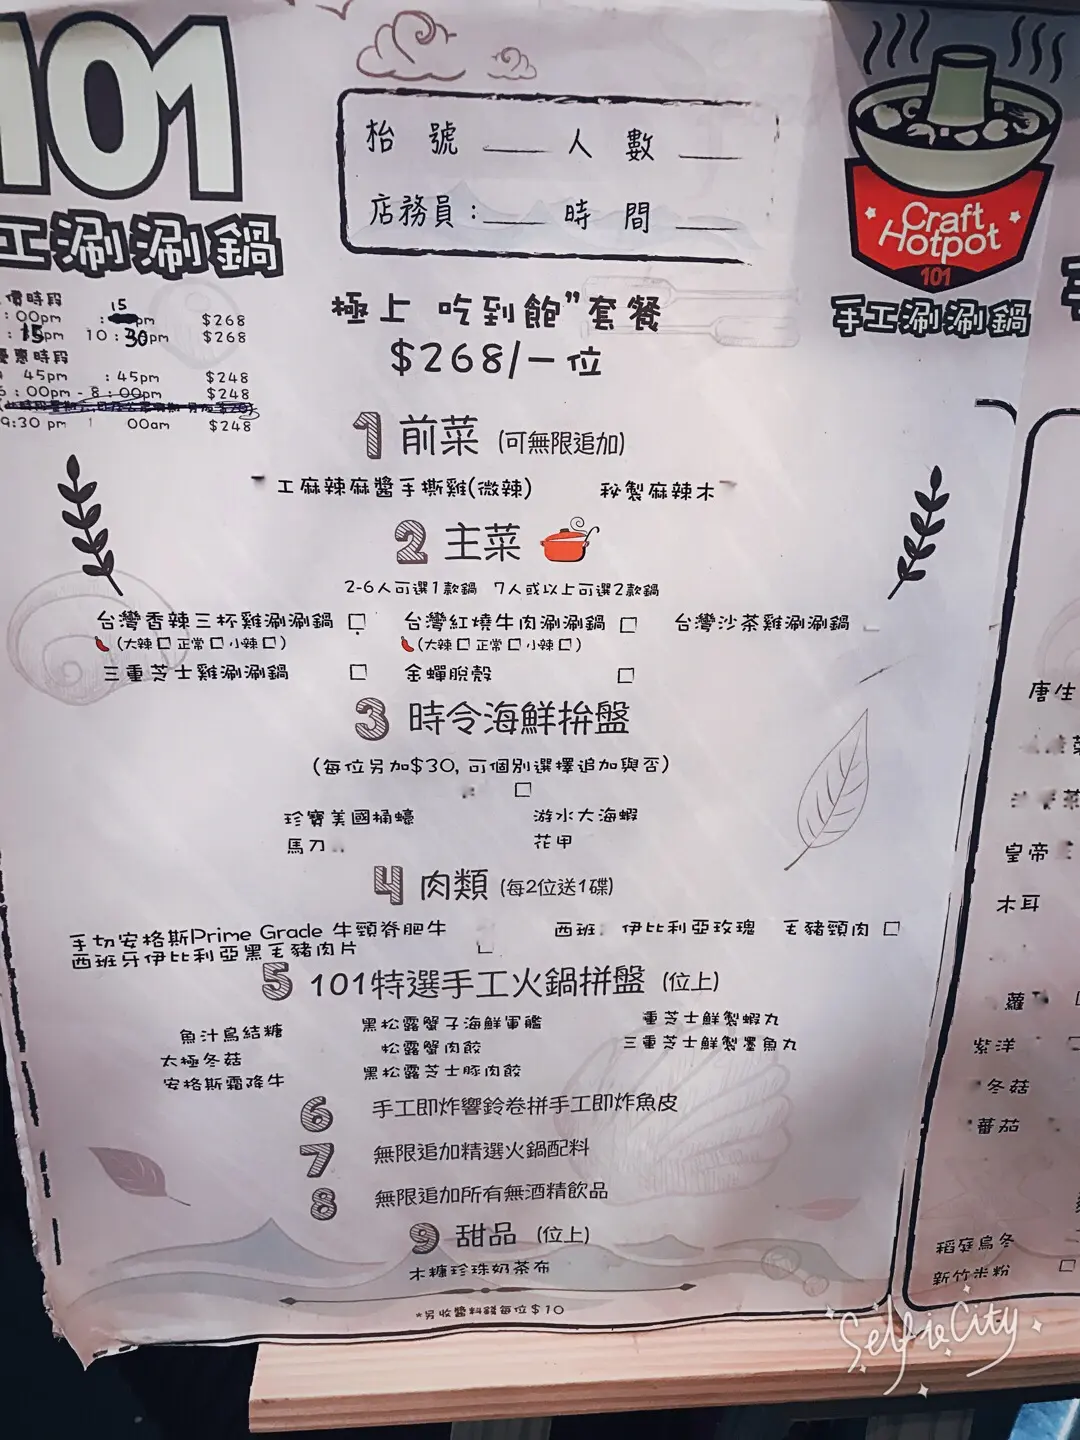 101
工涮涮鍋
枱號 人數
店務員: 時間
Craft
Hotpot
101
手工涮涮鍋
價時段
:00pm : 15 pm $268
:15pm 10:30pm $268
惠時段
45pm :45pm $248
:00pm - 8:00pm $248
9:30 pm 00am $248
極上 吃到飽”套餐
$268/一位
1 前菜 (可無限追加)
工麻辣麻醬手撕雞(微辣) 秘製麻辣木
2 主菜
2-6人可選1款鍋 7人或以上可選2款鍋
台灣香辣三杯雞涮涮鍋 台灣紅燒牛肉涮涮鍋 台灣沙茶雞涮涮鍋
(大辣 正常 小辣) (大辣 正常 小辣)
三重芝士雞涮涮鍋 金蟬脫殼
3 時令海鮮拚盤
(每位另加$30, 可個別選擇追加與否)
珍寶美國桶蠔 游水大海蝦
馬刀 花甲
4 肉類 (每2位送1碟)
手切安格斯Prime Grade 牛頸脊肥牛 西班 伊比利亞玫瑰 毛豬頸肉
西班牙伊比利亞黑毛豬肉片
5 101特選手工火鍋拼盤 (位上)
魚汁烏結糖 黑松露蟹子海鮮軍艦 重芝士鮮製蝦丸
太極冬菇 松露蟹肉餃 三重芝士鮮製墨魚丸
安格斯霜降牛 黑松露芝士豚肉餃
6 手工即炸響鈴卷拼手工即炸魚皮
7 無限追加精選火鍋配料
8 無限追加所有無酒精飲品
9 甜品 (位上)
木糖珍珠奶茶布
*另收醬料錢每位$10
唐生
菜
皇帝
木耳
蘿
紫洋
冬菇
蕃茄
稻庭烏冬
新竹米粉
SelfieCity